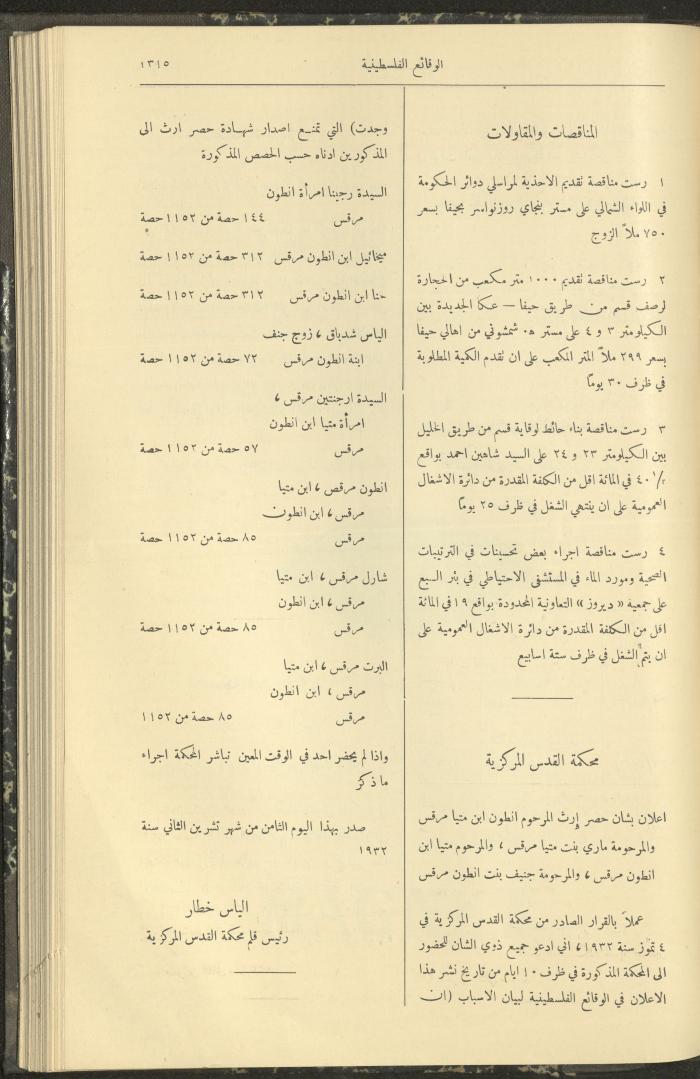 الوقائع الفلسطينية
١٣١٥
المناقصات والمقاولات
١ رست مناقصة تقديم الاحذية لمراسلي دوائر الحكومة
في اللواء الشمالي على مستر بنجاي روزنواسر بحيفا بسعر
٧٥٠ ملاً الزوج
٢ رست مناقصة تقديم ١٠٠٠ متر مكعب من الحجارة
لرصف قسم من طريق حيفا – عكا الجديدة بين
الكيلومتر ٣ و ٤ على مستر ه. شمشوني من اهالي حيفا
بسعر ٢٩٩ ملاً المتر المكعب على ان تقدم الكمية المطلوبة
في ظرف ٣٠ يوماً
٣ رست مناقصة بناء حائط لوقاية قسم من طريق الخليل
بين الكيلومتر ٢٣ و ٢٤ على السيد شاهين احمد بواقع
٤٠ ١/٢ في المائة اقل من الكلفة المقدرة من دائرة الاشغال
العمومية على ان ينتهي الشغل في ظرف ٢٥ يوماً
٤ رست مناقصة اجراء بعض تحسينات في الترتيبات
الصحية ومورد الماء في المستشفى الاحتياطي في بئر السبع
على جمعية « ديروز » التعاونية المحدودة بواقع ١٩ في المائة
اقل من الكلفة المقدرة من دائرة الاشغال العمومية على
ان يتم الشغل في ظرف ستة اسابيع
محكمة القدس المركزية
اعلان بشان حصر إرث المرحوم انطون ابن متيا مرقس
والمرحومة ماري بنت متيا مرقس ، والمرحوم متيا ابن
انطون مرقس ، والمرحومة جنيف بنت انطون مرقس
عملاً بالقرار الصادر من محكمة القدس المركزية في
٤ تموز سنة ١٩٣٢ ، اني ادعو جميع ذوي الشان للحضور
الى المحكمة المذكورة في ظرف ١٠ ايام من تاريخ نشر هذا
الاعلان في الوقائع الفلسطينية لبيان الاسباب (ان
وجدت) التي تمنع اصدار شهادة حصر ارث الى
المذكورين ادناه حسب الحصص المذكورة
السيدة رجينا امرأة انطون
مرقس ١٤٤ حصة من ١١٥٢ حصة
ميخائيل ابن انطون مرقس ٣١٢ حصة من ١١٥٢ حصة
حنا ابن انطون مرقس ٣١٢ حصة من ١١٥٢ حصة
الياس شدياق ، زوج جنف
ابنة انطون مرقس ٧٢ حصة من ١١٥٢ حصة
السيدة ارجنتين مرقس ،
امرأة متيا ابن انطون
مرقس ٥٧ حصة من ١١٥٢ حصة
انطون مرقص ، ابن متيا
مرقس ، ابن انطون
مرقس ٨٥ حصة من ١١٥٢ حصة
شارل مرقس ، ابن متيا
مرقس ، ابن انطون
مرقس ٨٥ حصة من ١١٥٢ حصة
البرت مرقس ، ابن متيا
مرقس ، ابن انطون
مرقس ٨٥ حصة من ١١٥٢
واذا لم يحضر احد في الوقت المعين تباشر المحكمة اجراء
ما ذكر
صدر بهذا اليوم الثامن من شهر تشرين الثاني سنة
١٩٣٢
الياس خطار
رئيس قلم محكمة القدس المركزية